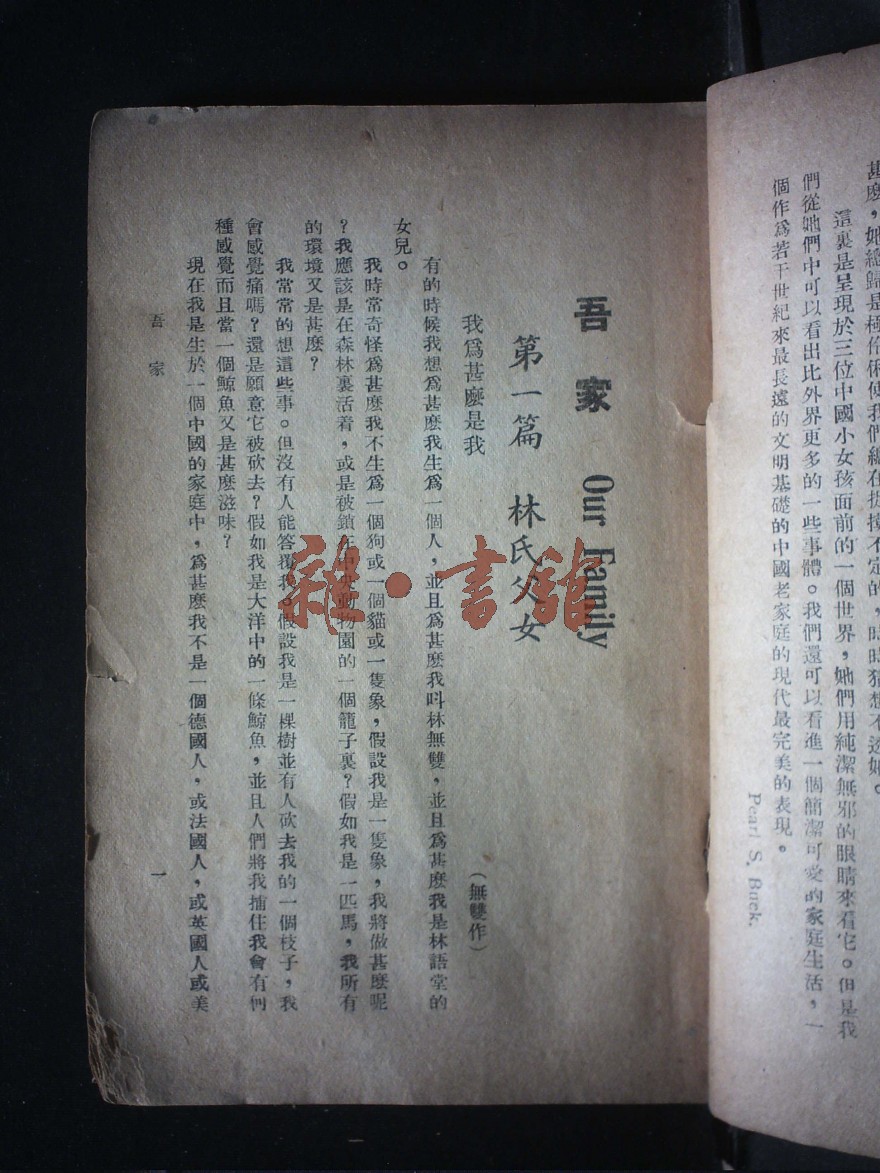 甚麽，她總歸是極
的，時時猜想不透她。
這裏是呈現於三位中國小女孩面前的一個世界，她們用純潔無邪的眼睛來看它。但是我
們從她們中可以看出比外界更多的一些事體。我們還可以看進一個簡潔可愛的家庭生活，一
個作爲若干世紀來最長遠的文明基礎的中國老家庭的現代最完美的表現。
Pearl S. Buck.
吾家 Our Family
第一篇 林氏父女
我爲甚麽是我
（無雙作）
有的時候我想爲甚麽我生爲一個人，並且爲甚麽我叫林無雙，並且爲甚麽我是林語堂的
女兒。
我時常奇怪爲甚麽我不生爲一個狗或一個貓或一隻象，假設我是一隻象，我將做甚麽呢
？我應該是在森林裏活着，或是被鎖在中央動物園的一個籠子裏？假如我是一匹馬，我所有
的環境又是甚麽？
我常常的想這些事。但沒有人能答覆我。假設我是一棵樹並有人砍去我的一個枝子，我
會感覺痛嗎？還是願意它被砍去？假如我是大洋中的一條鯨魚，並且人們將我捕住我會有何
種感覺而且當一個鯨魚又是甚麽滋味？
現在我是生於一個中國的家庭中，爲甚麽我不是一個德國人，或法國人，或英國人或美
吾家
一
雜·書館